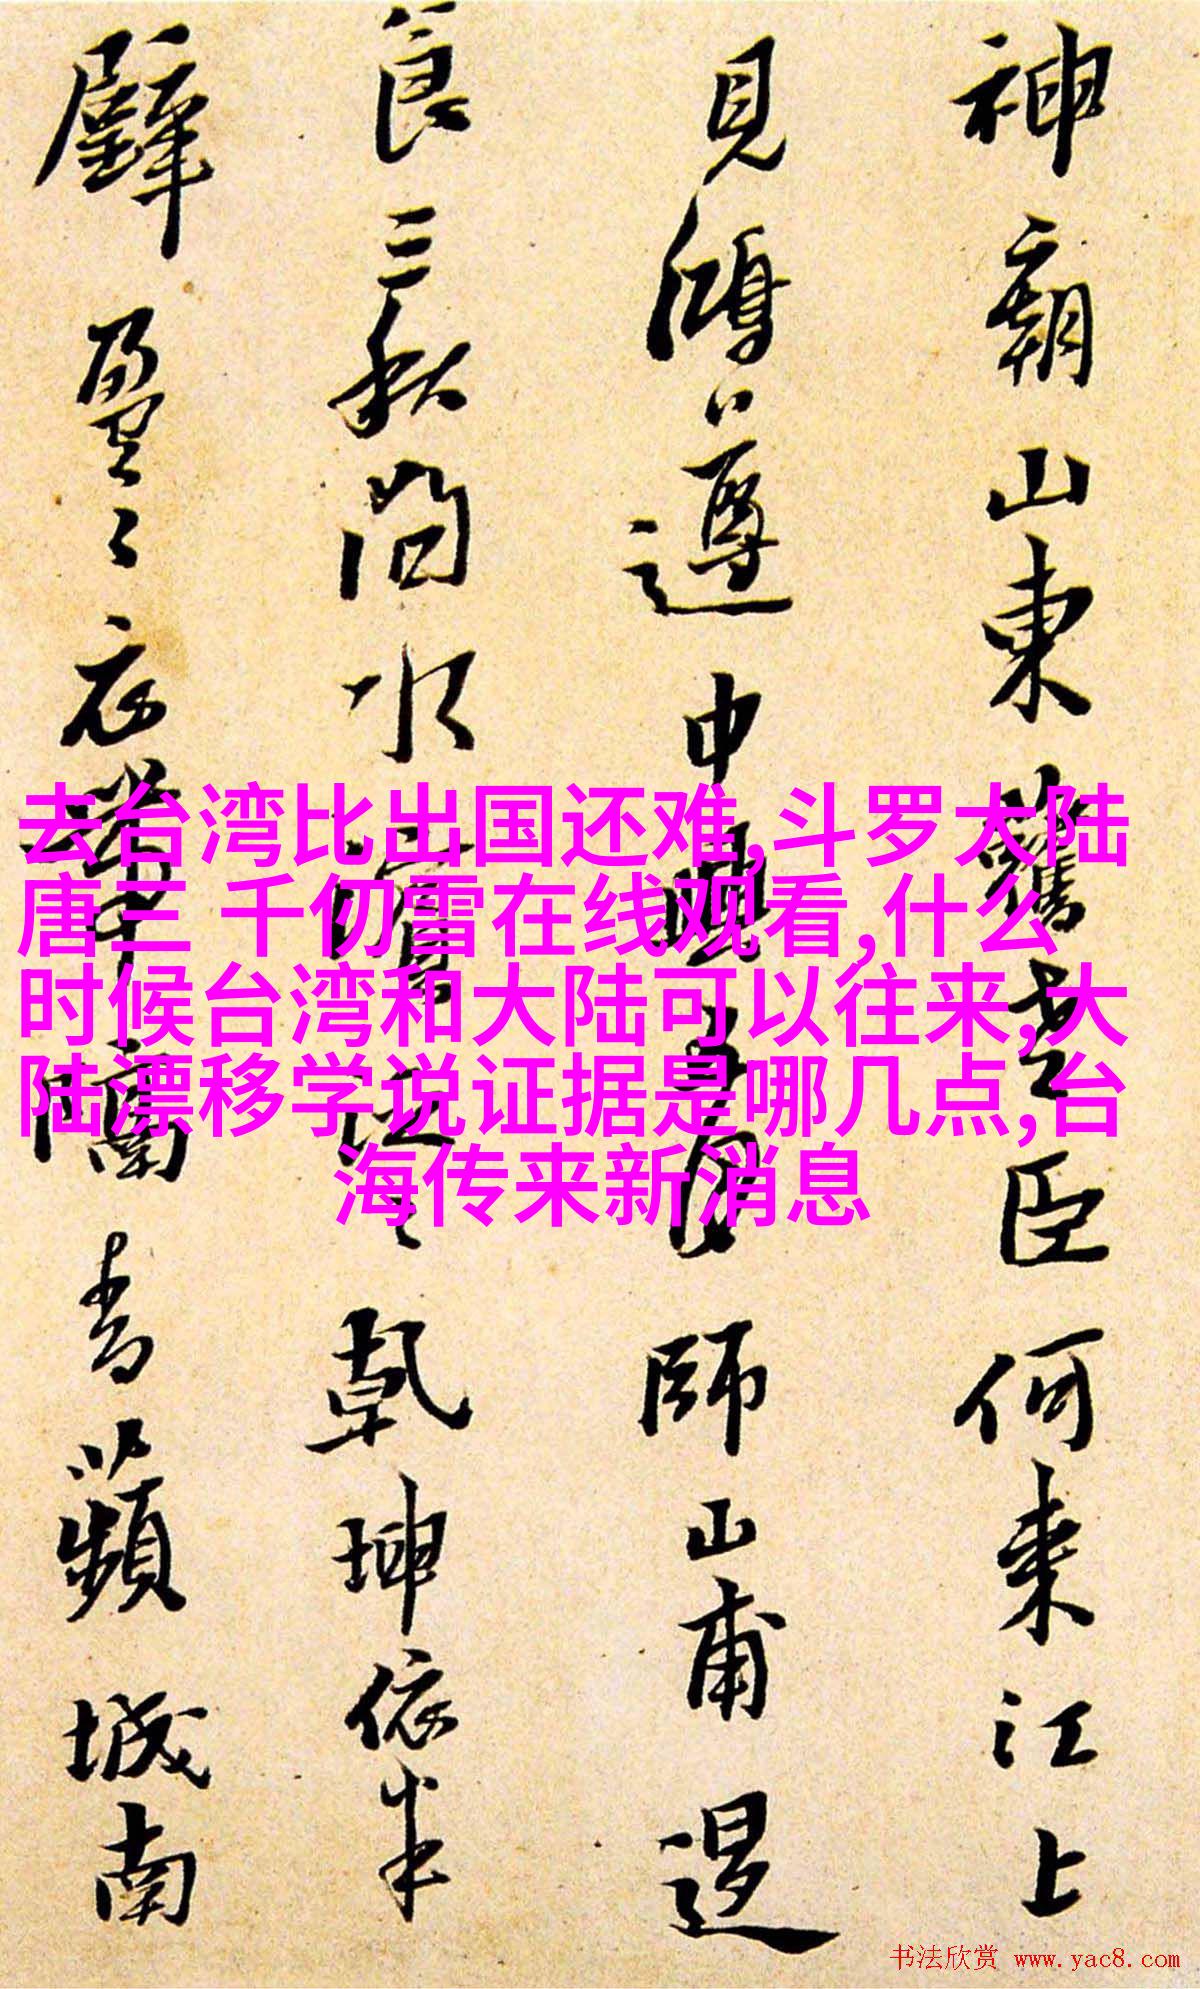 神廟山東舊老臣何來江上
見鴻遵中興師山甫
三秋問水濱乾坤依半
壁盈々衣帶隔青蘋城南
去台湾比出国还难,斗罗大陆
唐三 千仞雪在线观看,什么
时候台湾和大陆可以往来,大
陆漂移学说证据是哪几点,台
海传来新消息
书法欣赏 www.yac8.com